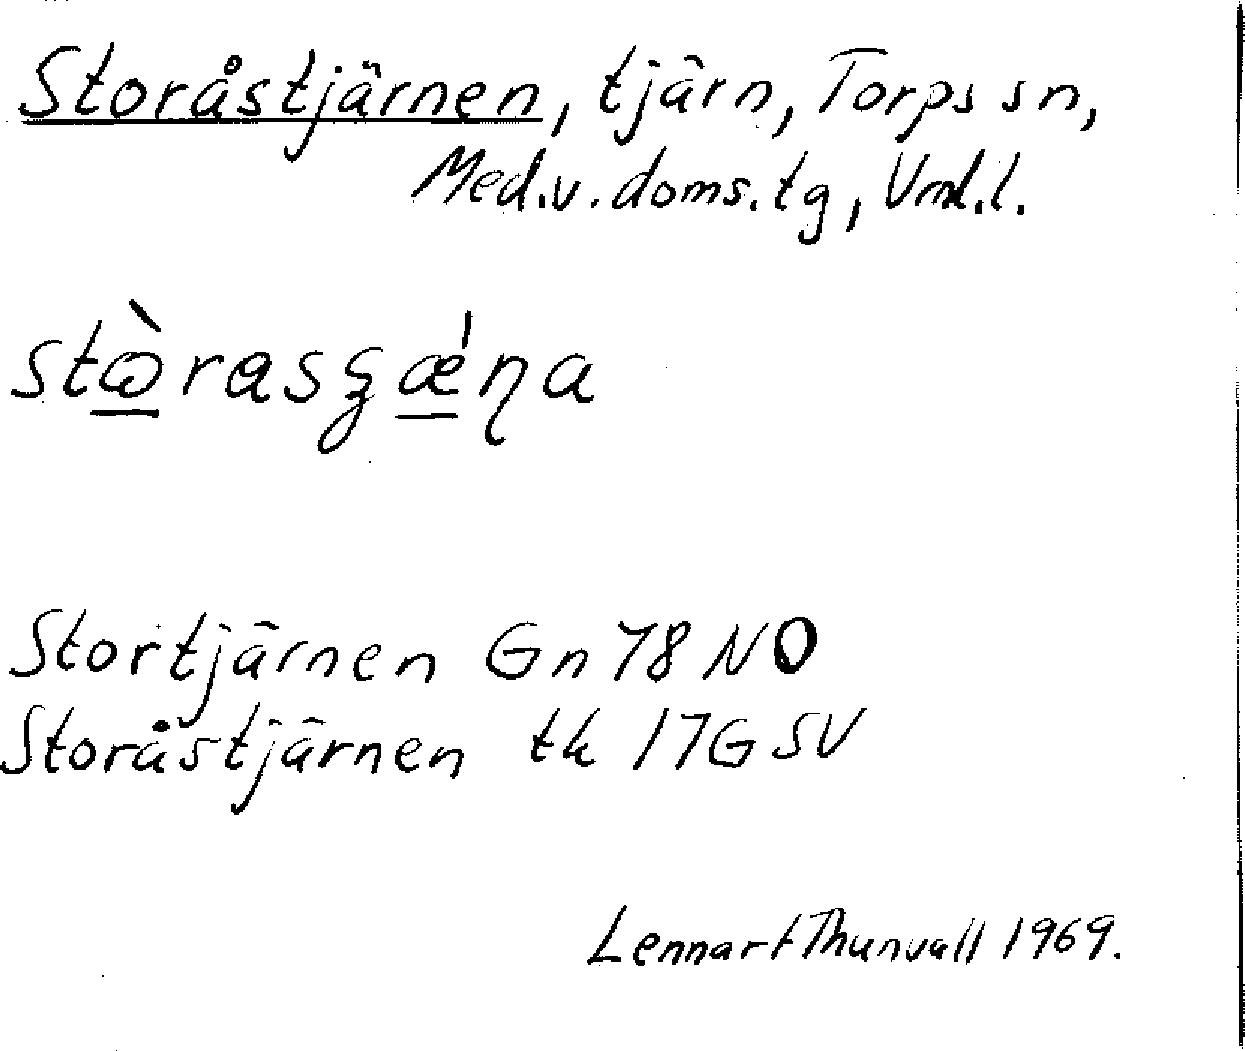 Storåstjärnen, tjärn, Torps sn,
Med.v.doms.tg, Vml.l.
Stortjärnen Gn 78 NO
Storåstjärnen tk 17G SV
Lennart Thunvall 1969.